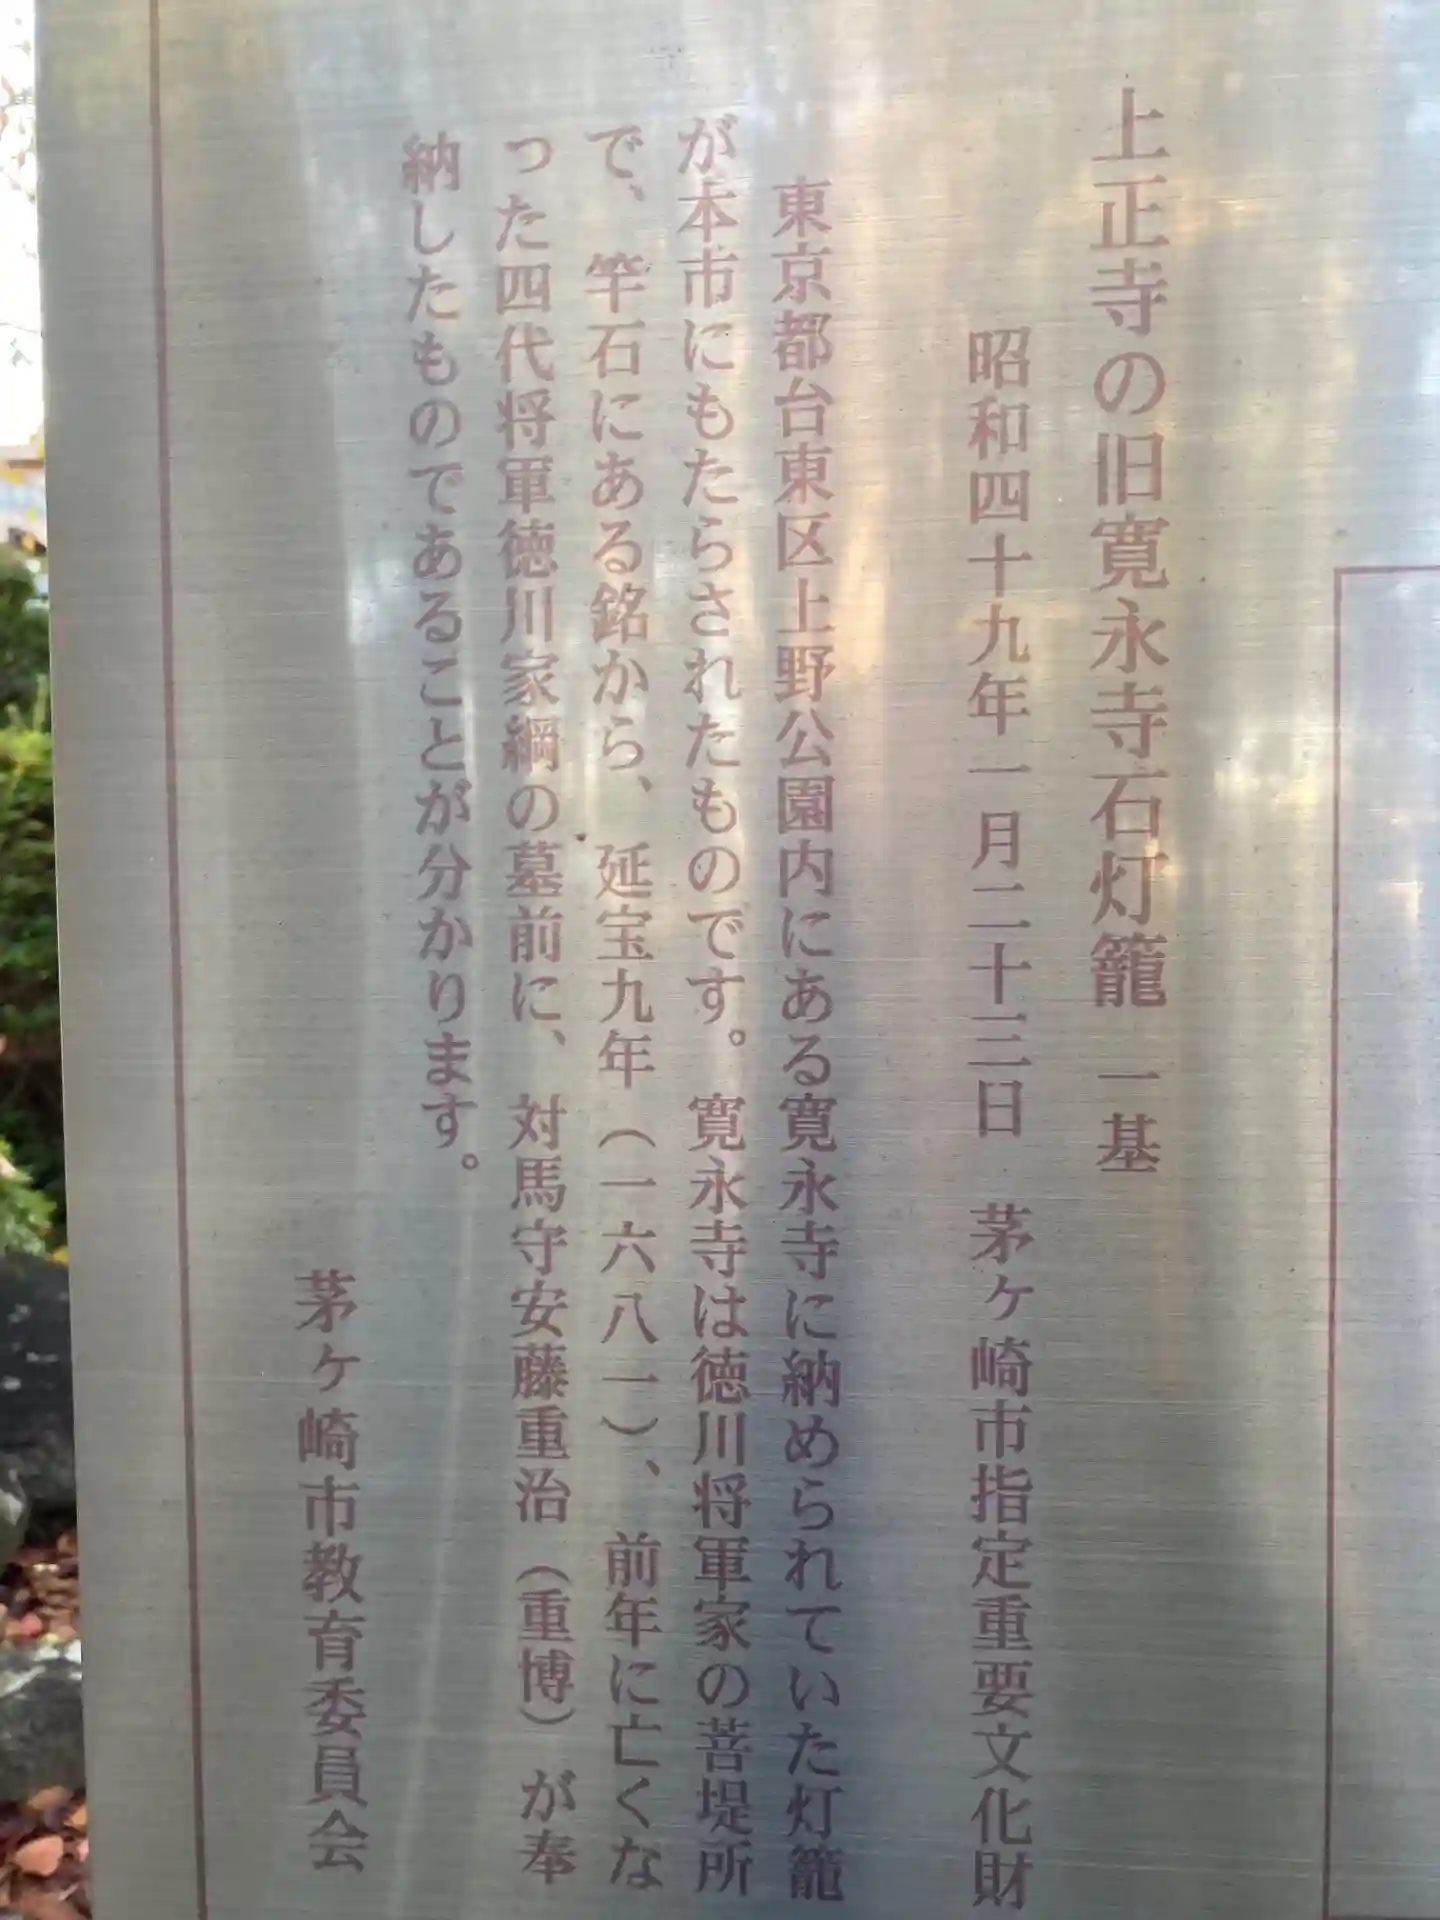 上正寺の旧寛永寺石灯籠 一基
昭和四十九年一月二十三日 茅ヶ崎市指定重要文化財
東京都台東区上野公園内にある寛永寺に納められていた灯籠
が本市にもたらされたものです。寛永寺は徳川将軍家の菩提所
で、竿石にある銘から、延宝九年（一六八一）、前年に亡くな
った四代将軍徳川家綱の墓前に、対馬守安藤重治（重博）が奉
納したものであることが分かります。
茅ヶ崎市教育委員会